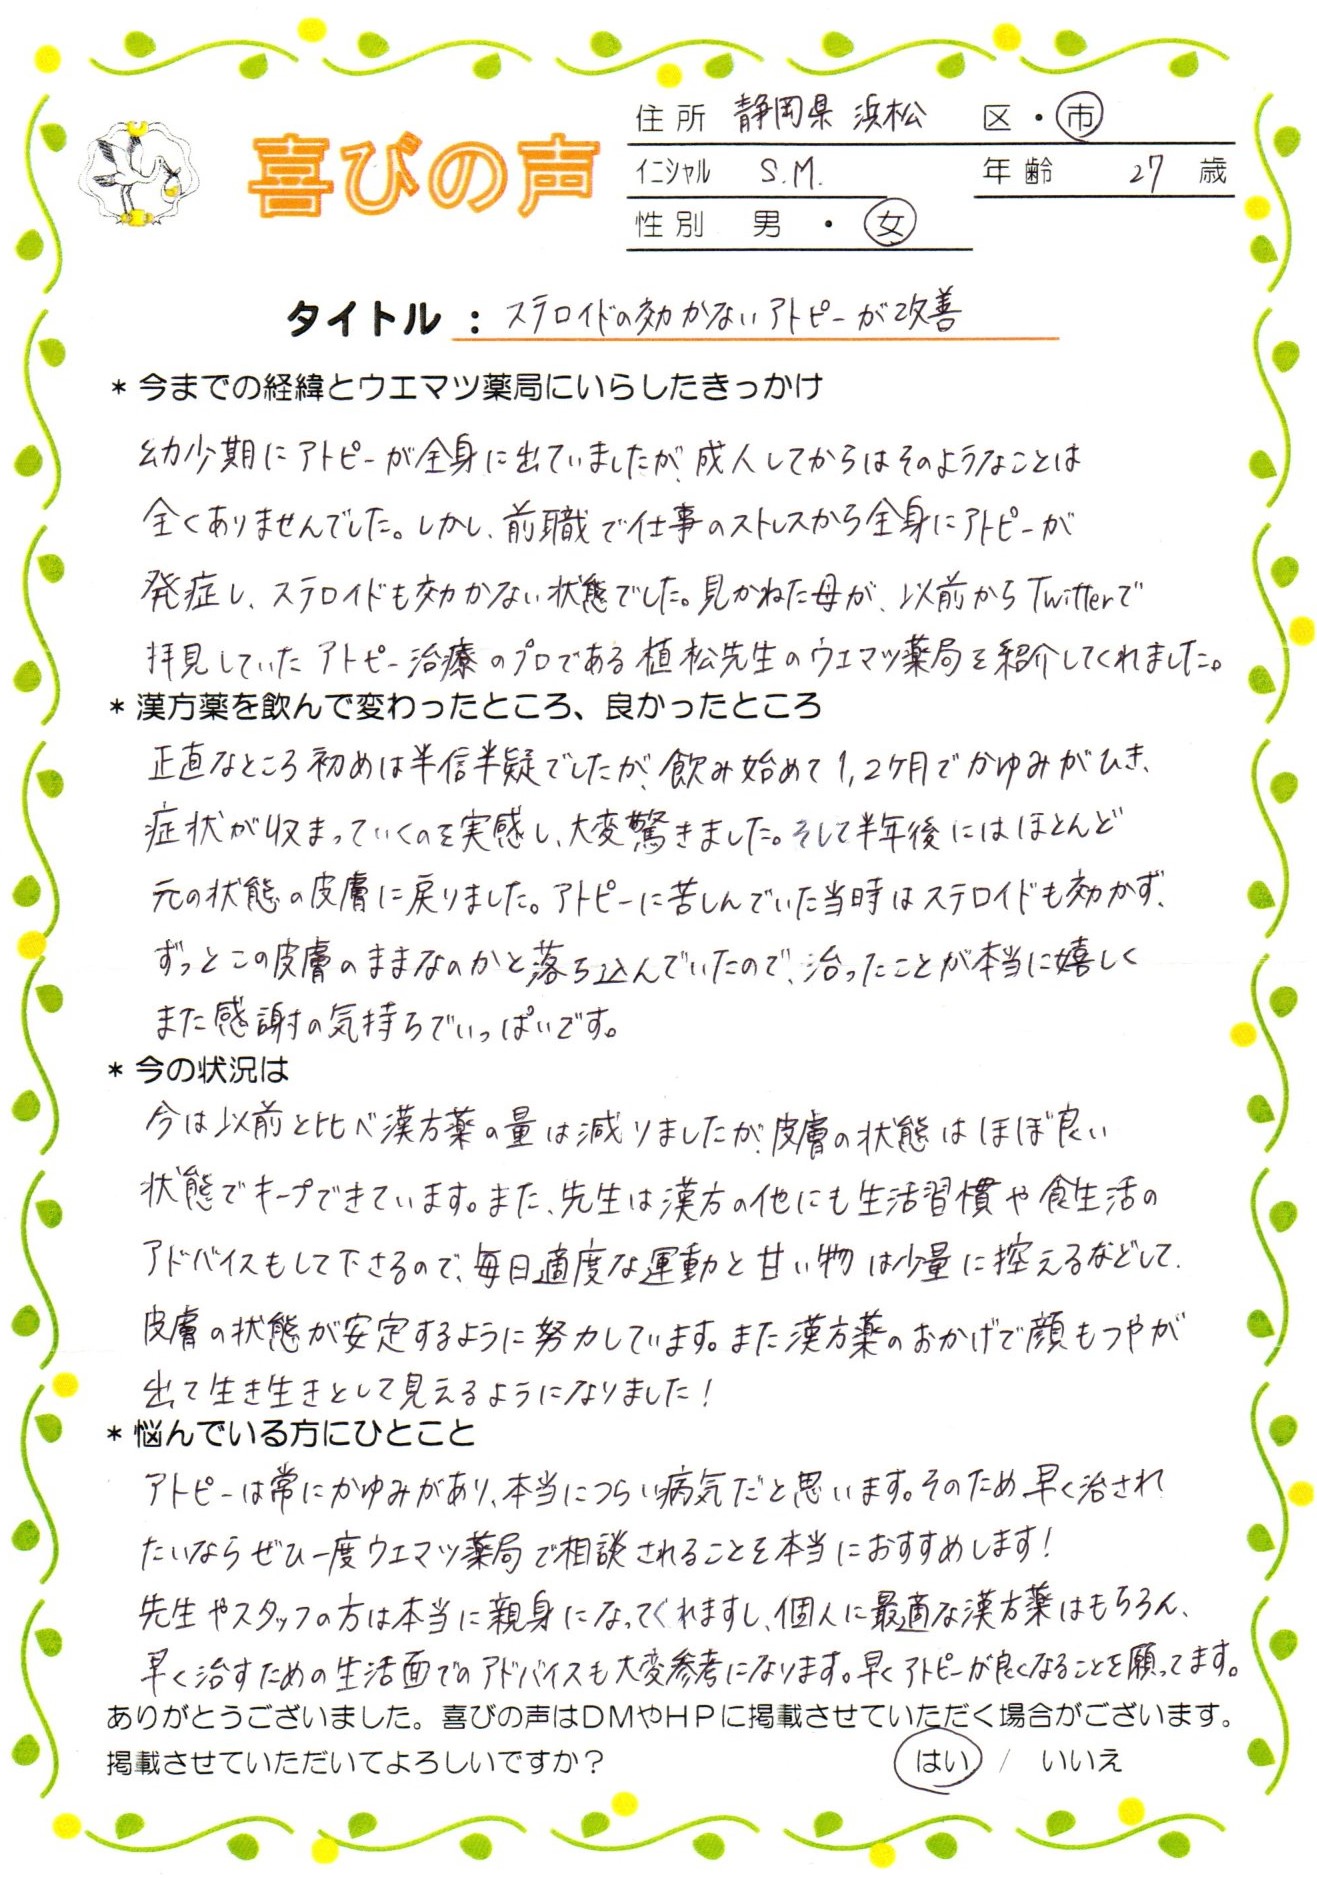 喜びの声
住所 静岡県 浜松 区・市
イニシャル S.M. 年齢 27 歳
性別 男・女
タイトル：ステロイドの効かないアトピーが改善
＊今までの経緯とウエマツ薬局にいらしたきっかけ
幼少期にアトピーが全身に出ていましたが、成人してからはそのようなことは
全くありませんでした。しかし、前職で仕事のストレスから全身にアトピーが
発症し、ステロイドも効かない状態でした。見かねた母が、以前からTwitterで
拝見していたアトピー治療のプロである植松先生のウエマツ薬局を紹介してくれました。
＊漢方薬を飲んで変わったところ、良かったところ
正直なところ初めは半信半疑でしたが、飲み始めて1,2ヶ月でかゆみがひき、
症状が収まっていくのを実感し、大変驚きました。そして半年後にはほとんど
元の状態の皮膚に戻りました。アトピーに苦しんでいた当時はステロイドも効かず、
ずっとこの皮膚のままなのかと落ち込んでいたので、治ったことが本当に嬉しく
また感謝の気持ちでいっぱいです。
＊今の状況は
今は以前と比べ漢方薬の量は減りましたが、皮膚の状態はほぼ良い
状態でキープできています。また、先生は漢方の他にも生活習慣や食生活の
アドバイスもして下さるので、毎日適度な運動と甘い物は少量に控えるなどして、
皮膚の状態が安定するように努力しています。また漢方薬のおかげで顔もつやが
出て生き生きとして見えるようになりました！
＊悩んでいる方にひとこと
アトピーは常にかゆみがあり、本当につらい病気だと思います。そのため、早く治され
たいならぜひ一度ウエマツ薬局で相談されることを本当におすすめします！
先生やスタッフの方は本当に親身になってくれますし、個人に最適な漢方薬はもちろん、
早く治すための生活面でのアドバイスも大変参考になります。早くアトピーが良くなることを願ってます。
ありがとうございました。喜びの声はＤＭやＨＰに掲載させていただく場合がございます。
掲載させていただいてよろしいですか？ はい / いいえ